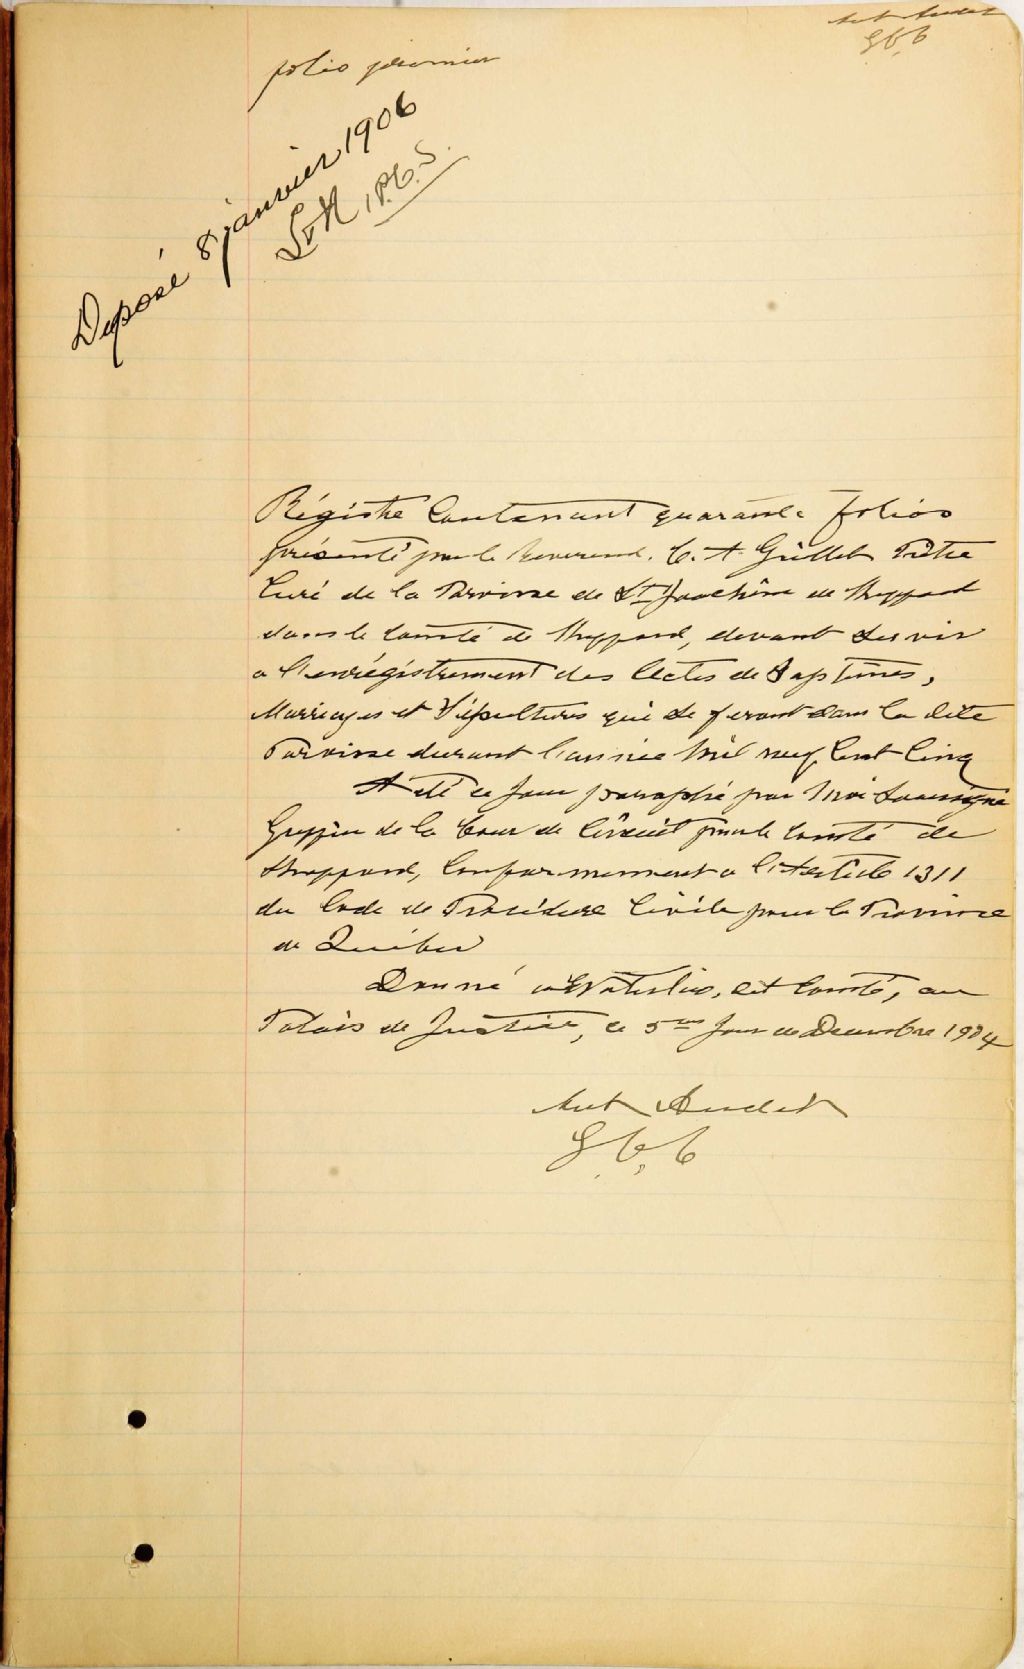 Ant Audet
G C C
folio premier
Déposé 8 janvier 1906
P.C.S.
Régistre Contenant quarante folios
présenté par le Reverend. C. A. Grillet Prêtre
Curé de la Paroisse de St Joachim de Shefford
dans le comté de Shefford, devant servir
a l'enrégistrement des Actes de Baptêmes,
Marriages et Sépultures qui se feront dans la dite
Paroisse durant l'année Mil neuf Cent Cinq
A été ce jour paraphé par Moi Soussigné
Greffier de la Cour de Circuit pour le Comté de
Shefford, Conformement a l'Article 1311
du Code de Procédure Civile pour la Province
de Québec
Donné a Waterloo, dit Comté, au
Palais de Justice, ce 5me jour de Decembre 1904
Ant Audet
G C C